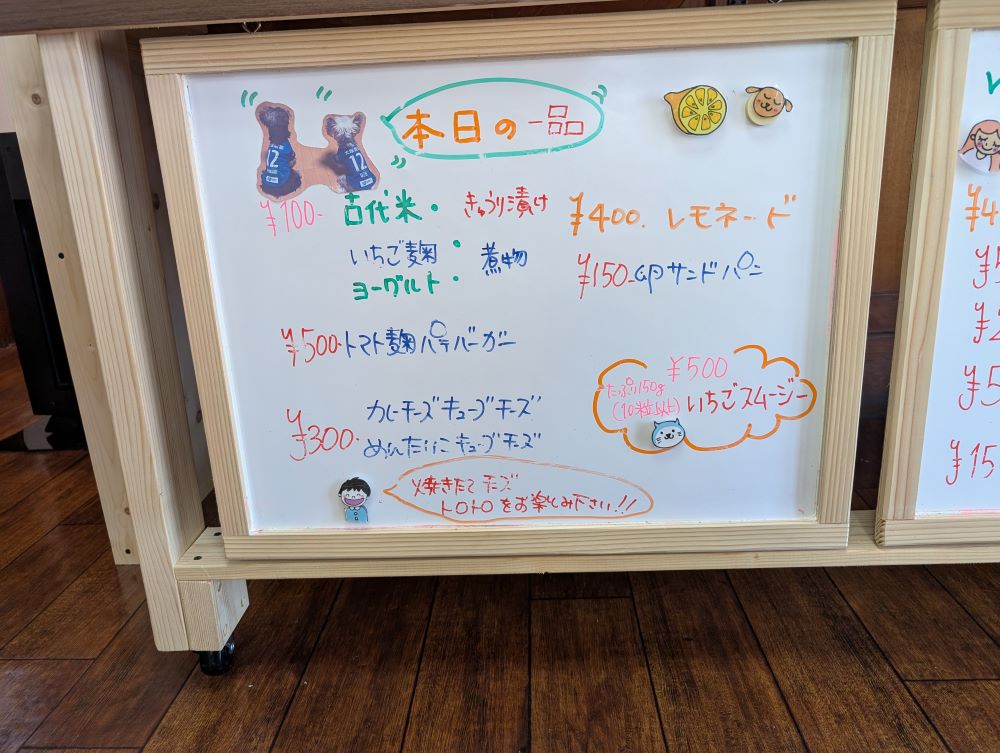 本日の一品
¥100- 古代米・きゅうり漬け
いちご麹・煮物
ヨーグルト・
¥500- トマト麹パテバーガー
¥300- カレーチーズキューブチーズ
めんたいこキューブチーズ
焼きたてチーズ
トロトロをお楽しみ下さい!!
¥400. レモネード
¥150- 卵サンドパン
¥500
たっぷり150g
(10粒以上) いちごスムージー
12
12
¥4
¥5
¥2
¥5
¥15